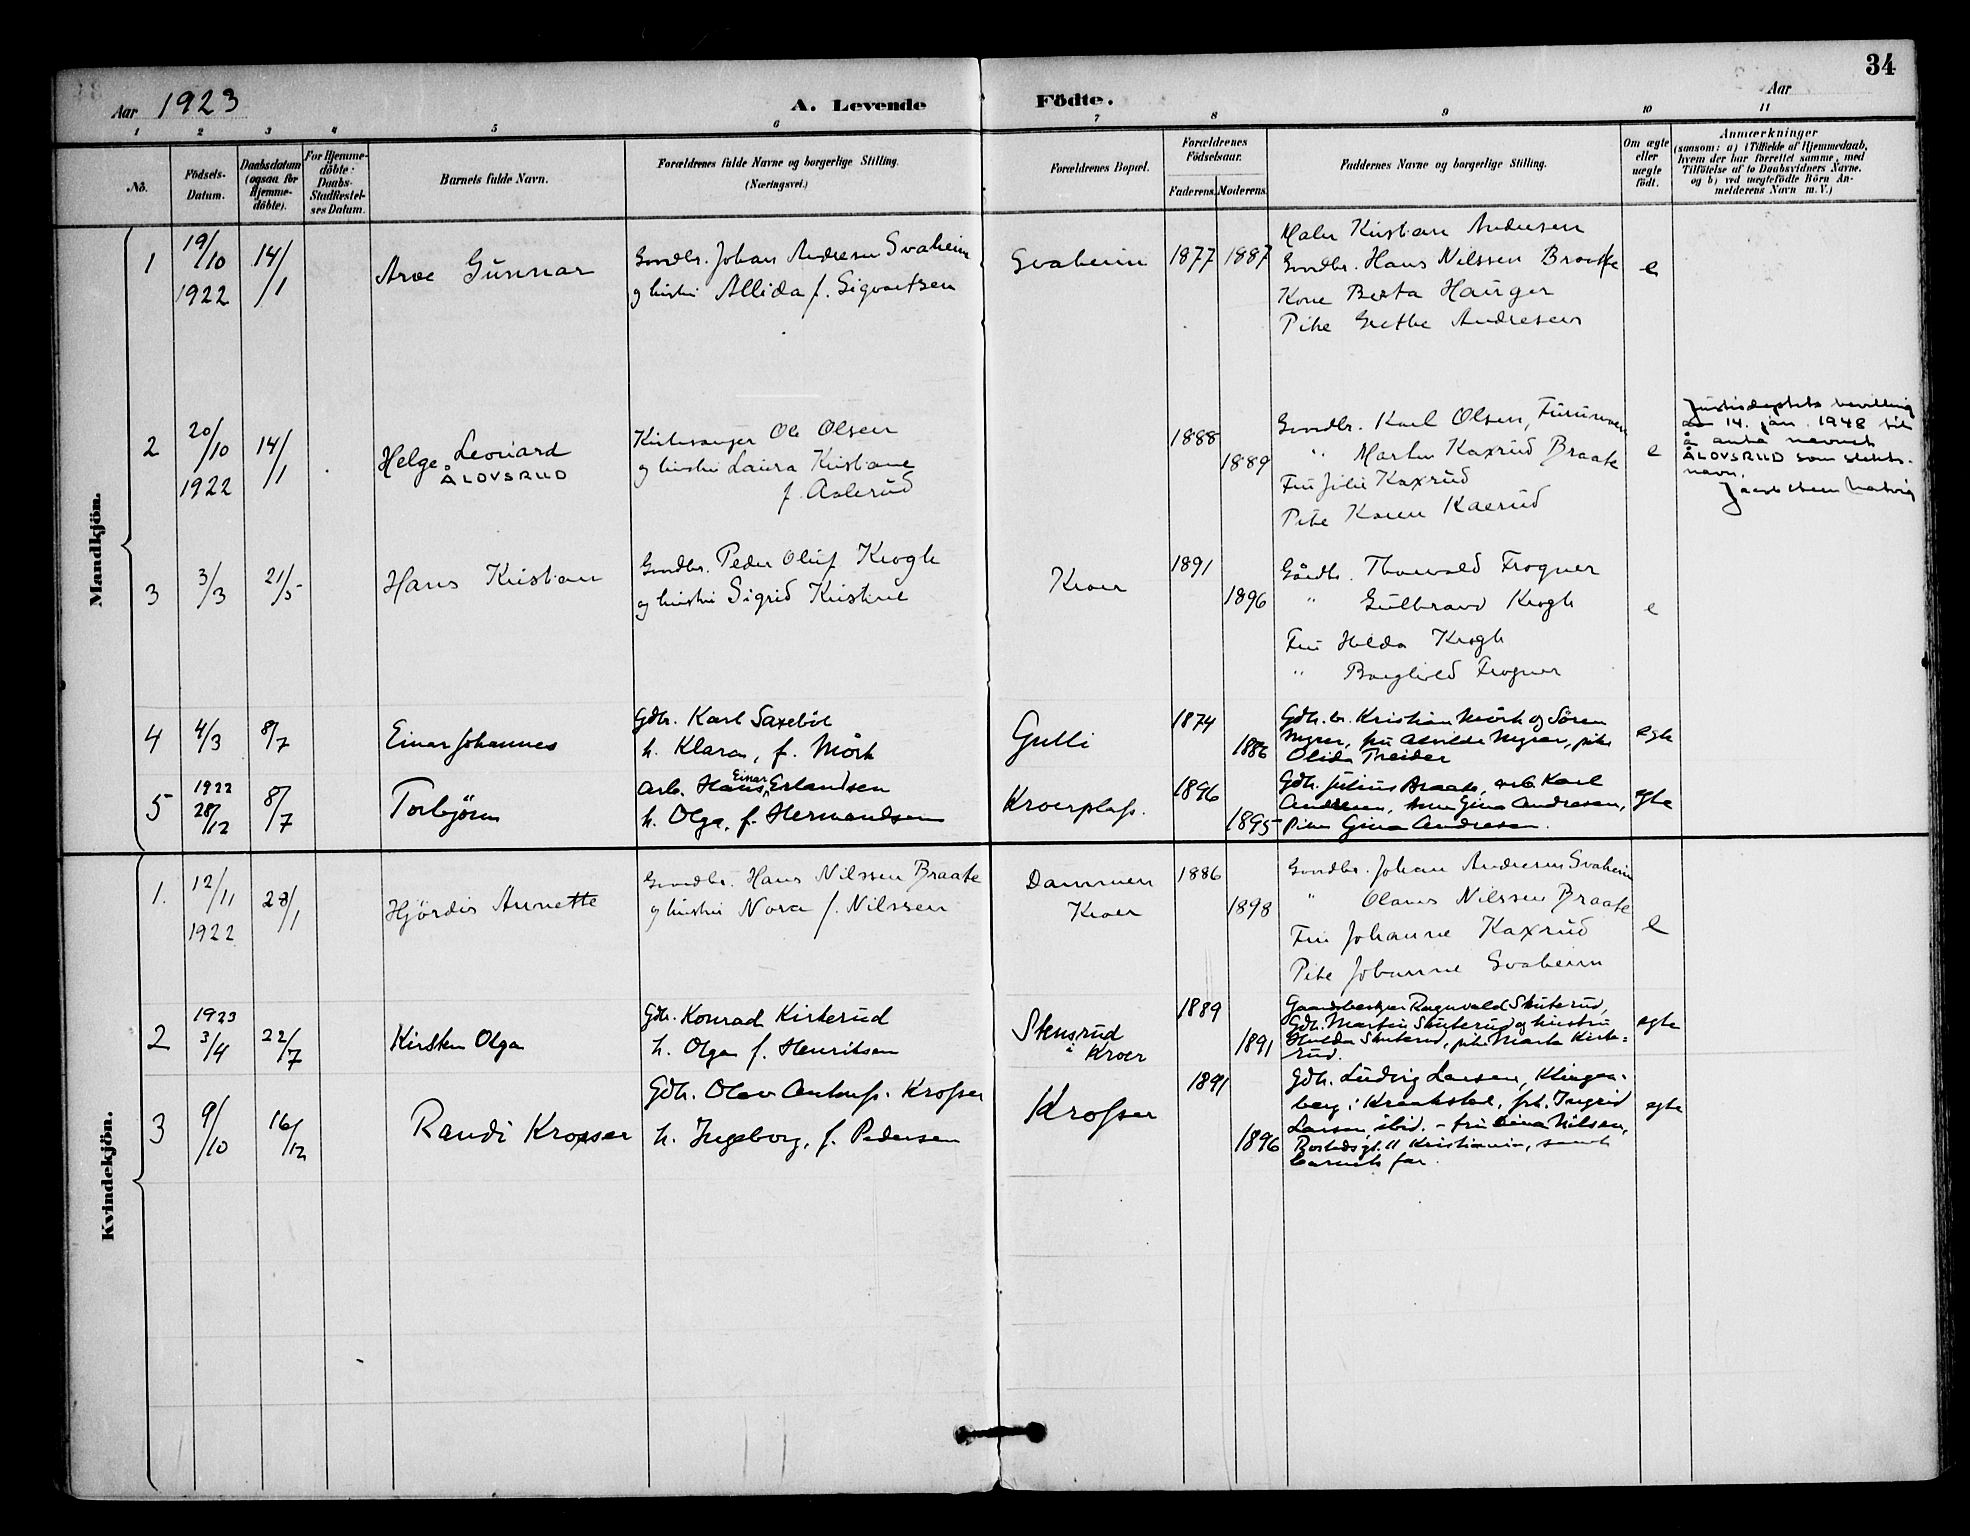 34
Aar 1923
A. Levende Födte.
Aar
1 2 3 4 5 6 7 8 9 10 11
No.
Födsels-Datum.
Daabsdatum (ogsaa for Hjemme-döbte).
For Hjemme-döbte: Daabs-Stadfæstel-ses Datum.
Barnets fulde Navn.
Forældrenes fulde Navne og borgerlige Stilling. (Næringsvei.)
Forældrenes Bopæl.
Forældrenes Födselsaar.
Faderens. Moderens.
Faddernes Navne og borgerlige Stilling.
Om ægte eller uægte födt.
Anmærkninger
(saasom: a) i Tilfælde af Hjemmedaab,
hvem der har forrettet samme, med
Tilföielse af to Daabsvidners Navne.
og b) ved uægtefödte Börn An-
melderens Navn m. V.)
Mandkjön.
1 19/10 1922 14/1
Arve Gunnar
Gaardbr. Johan Andresen Svaheim
og hustru Allida f. Sigvartsen
Svaheim
1877 1887
Maler Kristian Andresen
Gaardbr. Hans Nilssen Braate
Kone Berta Hauger
Pike Grethe Andresen
e
2 20/10 1922 14/1
Helge Leonard
ÅLOVSRUD
Kirkesanger Ole Olsen
og hustru Laura Kristiane
f. Aalerud
1888 1889
Gaardbr. Karl Olsen,
" Martin Kaxrud Braate
Fru Julie Kaxrud
Pike Karen Kaxrud
e
Justisdeptets bevilling
av 14. jan. 1948 til
å anta navnet
ÅLOVSRUD som slekts-
navn.
3 3/3 21/5
Hans Kristian
Gaardbr. Peder Oluf Krogh
og hustru Sigrid Kristine
Kroer
1891 1896
Gårdbr. Thorvald Frogner
" Gulbrand Krogh
Fru Hilda Krogh
" Borghild Frogner
e
4 4/3 8/7
Einar Johannes
Gdbr. Karl Saxebøl
h. Klara, f. Mörk
Gulli
1874 1886
Gdbr. Kristian Mörk og Sören
Myrer, fru Alvilde Myrer, pike
Olida Treider
egte
5 1922 28/12 8/7
Torbjörn
Arb. Hans Einar Erlandsen
h. Olga, f. Hermandsen
Kroerplass.
1896 1895
Gdbr. Julius Braate, arb. Karl
Andresen, kone Gina Andresen,
Pike Gina Andresen.
egte
Kvindekjön.
1. 12/11 1922 28/1
Hjördis Annette
Gaardbr. Hans Nilssen Braate
og hustru Nora f. Nilssen
Dammen
Kroer
1886 1898
Gaardbr. Johan Andresen Svaheim
" Olaus Nilssen Braate
Fru Johanne Kaxrud
Pike Johanne Svaheim
e
2 1923 3/4 22/7
Kirsten Olga
Gdb. Konrad Kirkerud
h. Olga f. Henriksen
Stensrud
i Kroer
1889 1891
Gaardbestyrer Ragnvald Skuterud,
Gdb. Martin Skuterud og hustru
Hulda Skuterud, pike Marta Kirke-
rud.
egte
3 9/10 16/12
Randi Krosser
Gdb. Olav Krosser
h. Ingeborg, f. Pedersen
Krosser
1891 1896
Gdb. Ludvig Larsen, Klingen-
berg i Kraakstad, frk. Ingrid
Larsen, ibid. - fru Nilsen,
11 Kristiania, samt
barnets far.
egte